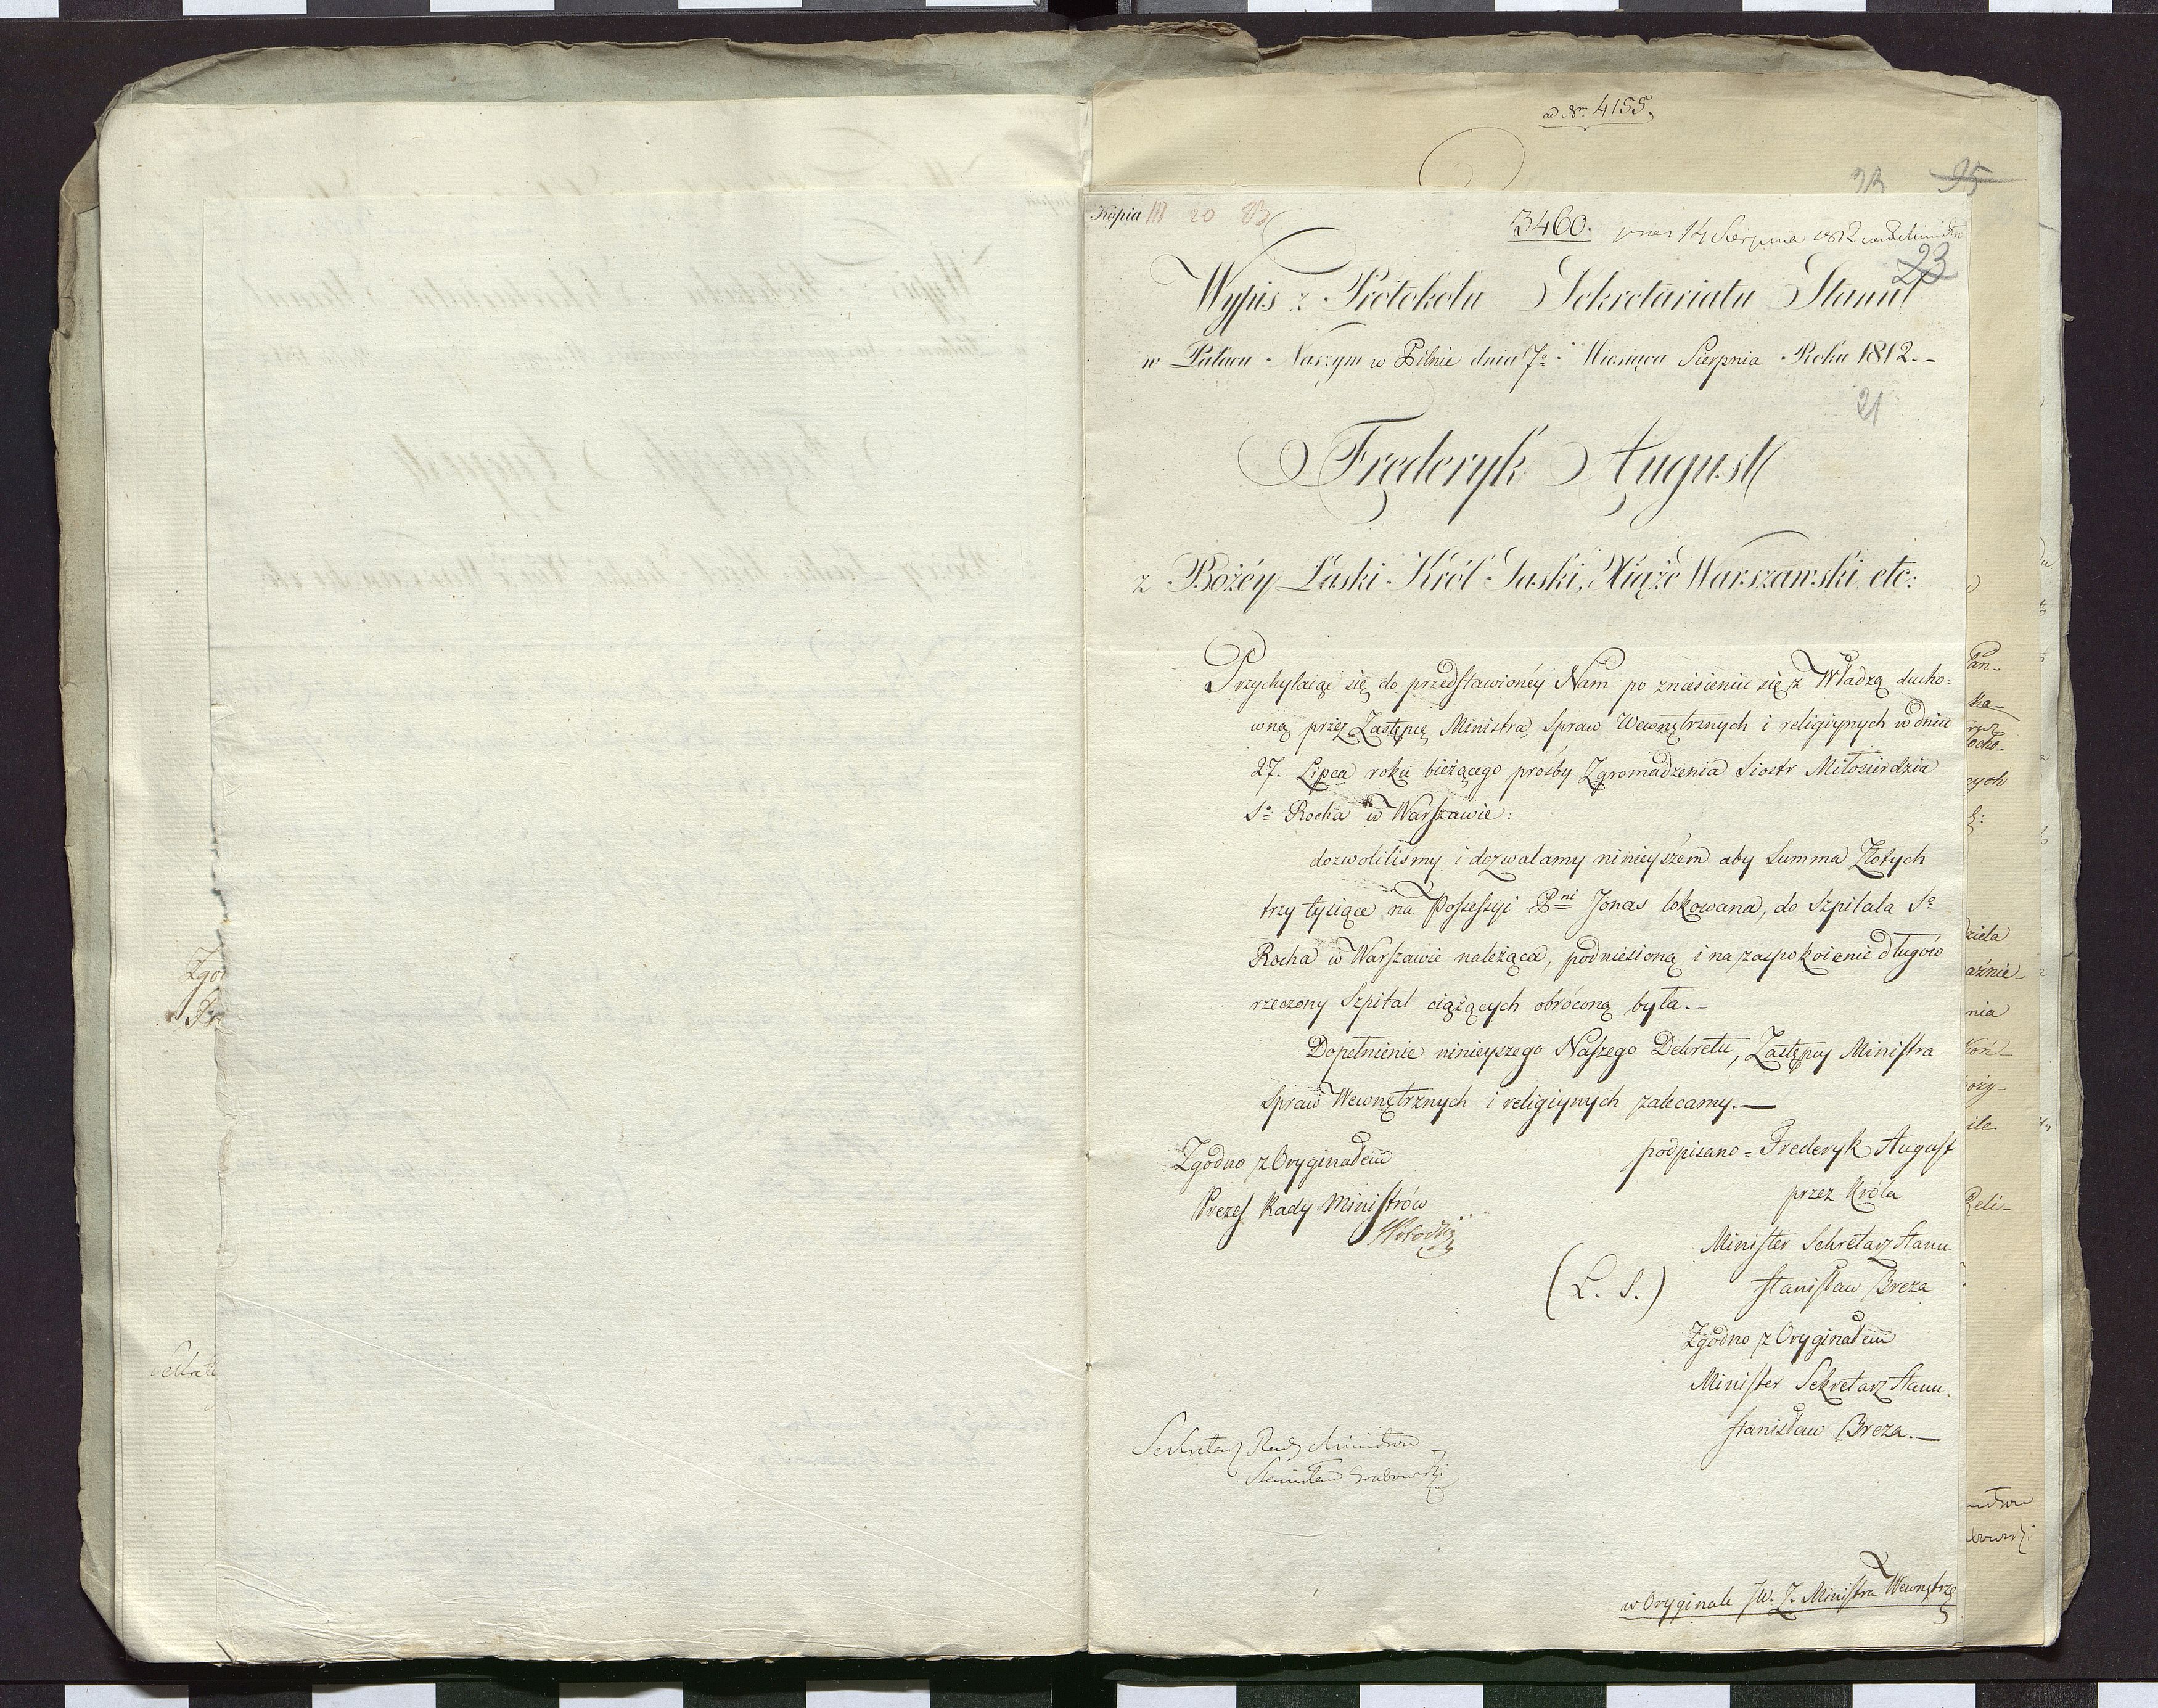 ad Nr. 4155.
95
Kopia III 20
3460. prez 14 Sierpnia 1812
23
Wypis z Protokołu Sekretariatu Stanu
w Pałacu Naszym w Pilnic dnia 7o Miesiąca Sierpnia Roku 1812.-
21
Fryderyk August
z Bożéy Łaski Król Saski, Xiąże Warszawski etc:
Przychylaiąc się do przedstawionéy Nam po zniesieniu się z Władzą ducho=
wną przez Zastępcę Ministra Spraw Wewnętrznych i religiynych w dniu
27. Lipca roku bieżącego prośby Zgromadzenia Siostr Miłosierdzia
So Rocha w Warszawie:
dozwoliliśmy i dozwalamy ninieyszem aby Summa Złotych
trzy tysiące na Possessyi Pni Jonas lokowana, do Szpitala So
Rocha w Warszawie należąca, podniesioną i na zaspokoienie długów
rzeczony Szpital ciążących obróconą była.-
Dopełnienie ninieyszego Naszego Dekretu, Zastępcy Ministra
Spraw Wewnętrznych i religiynych zalecamy.-
Zgodno z Oryginałem
Prezes Rady Ministrów
podpisano = Frederyk August
przez Króla
Minister Sekretarz Stanu
(L. S.) Stanisław Breza
Zgodno z Oryginałem
Minister Sekretarz Stanu.
Stanisław Breza.-
Sekretarz Rady Ministrów
Stanisław Grabowski
w Oryginale JW. Z. Ministra Wewnętrz